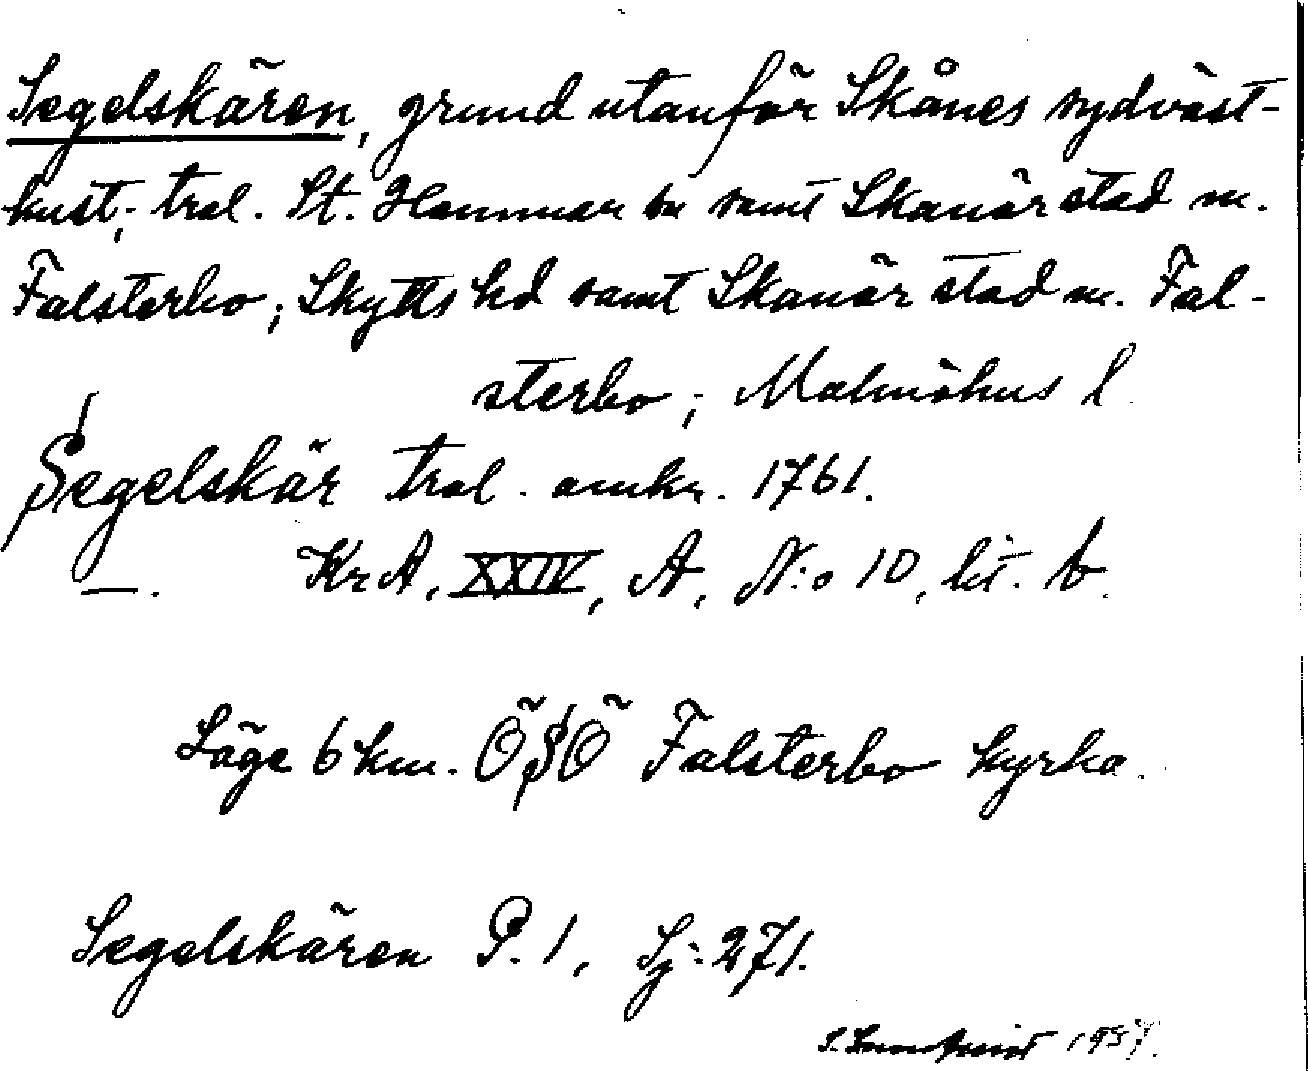 Segelskären, grund utanför Skånes sydväst-
kust; trol. St. Hammar sn samt Skanör stad m.
Falsterbo; Skytts hd samt Skanör stad m. Fal-
sterbo; Malmöhus l.
Segelskär trol. omkr. 1761.
—. KrA, XXIV, A, N:o 10, lit. b.
Läge 6 km. ÖSÖ Falsterbo kyrka.
Segelskären P. 1, Sj: 271.
S. 19